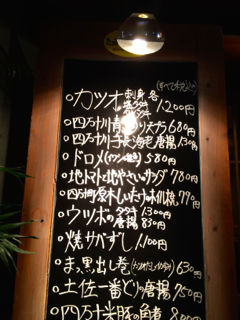 (すべて税込み)
○カツオ 刺身 各
塩タタキ
タタキ 1200円
○四万十川青のり天ぷら680円
○四万十川手長海老唐揚1380円
○ドロメ(イワシの稚魚)580円
○地トマトと地やさいのサラダ780円
○四万十町原木しいたけホイル焼770円
○ウツボ タタキ 1300円
唐揚 830円
○焼サバずし 1,100円
○ま、黒出し巻 630円
○土佐一番どりの唐揚750円
○四万十米豚の角煮 800円